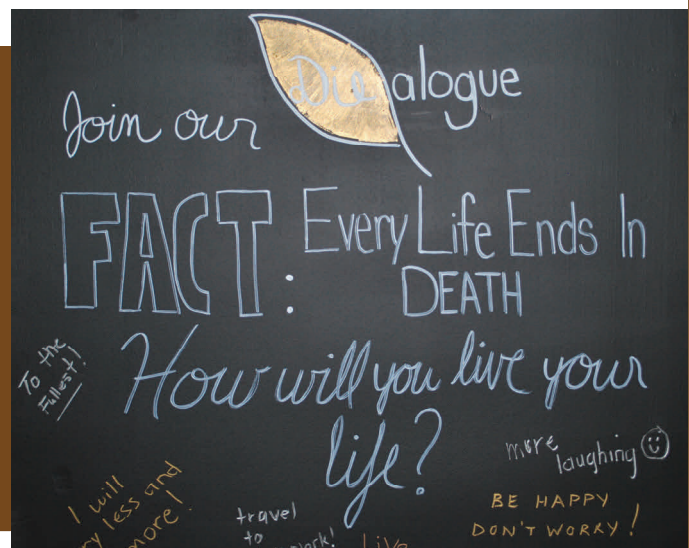 Join our Die alogue
FACT: Every Life Ends In
DEATH
How will you live your
life?
To the
Fullest!
more
laughing
BE HAPPY
DON'T WORRY!
I will
less and
more!
travel
to
Live